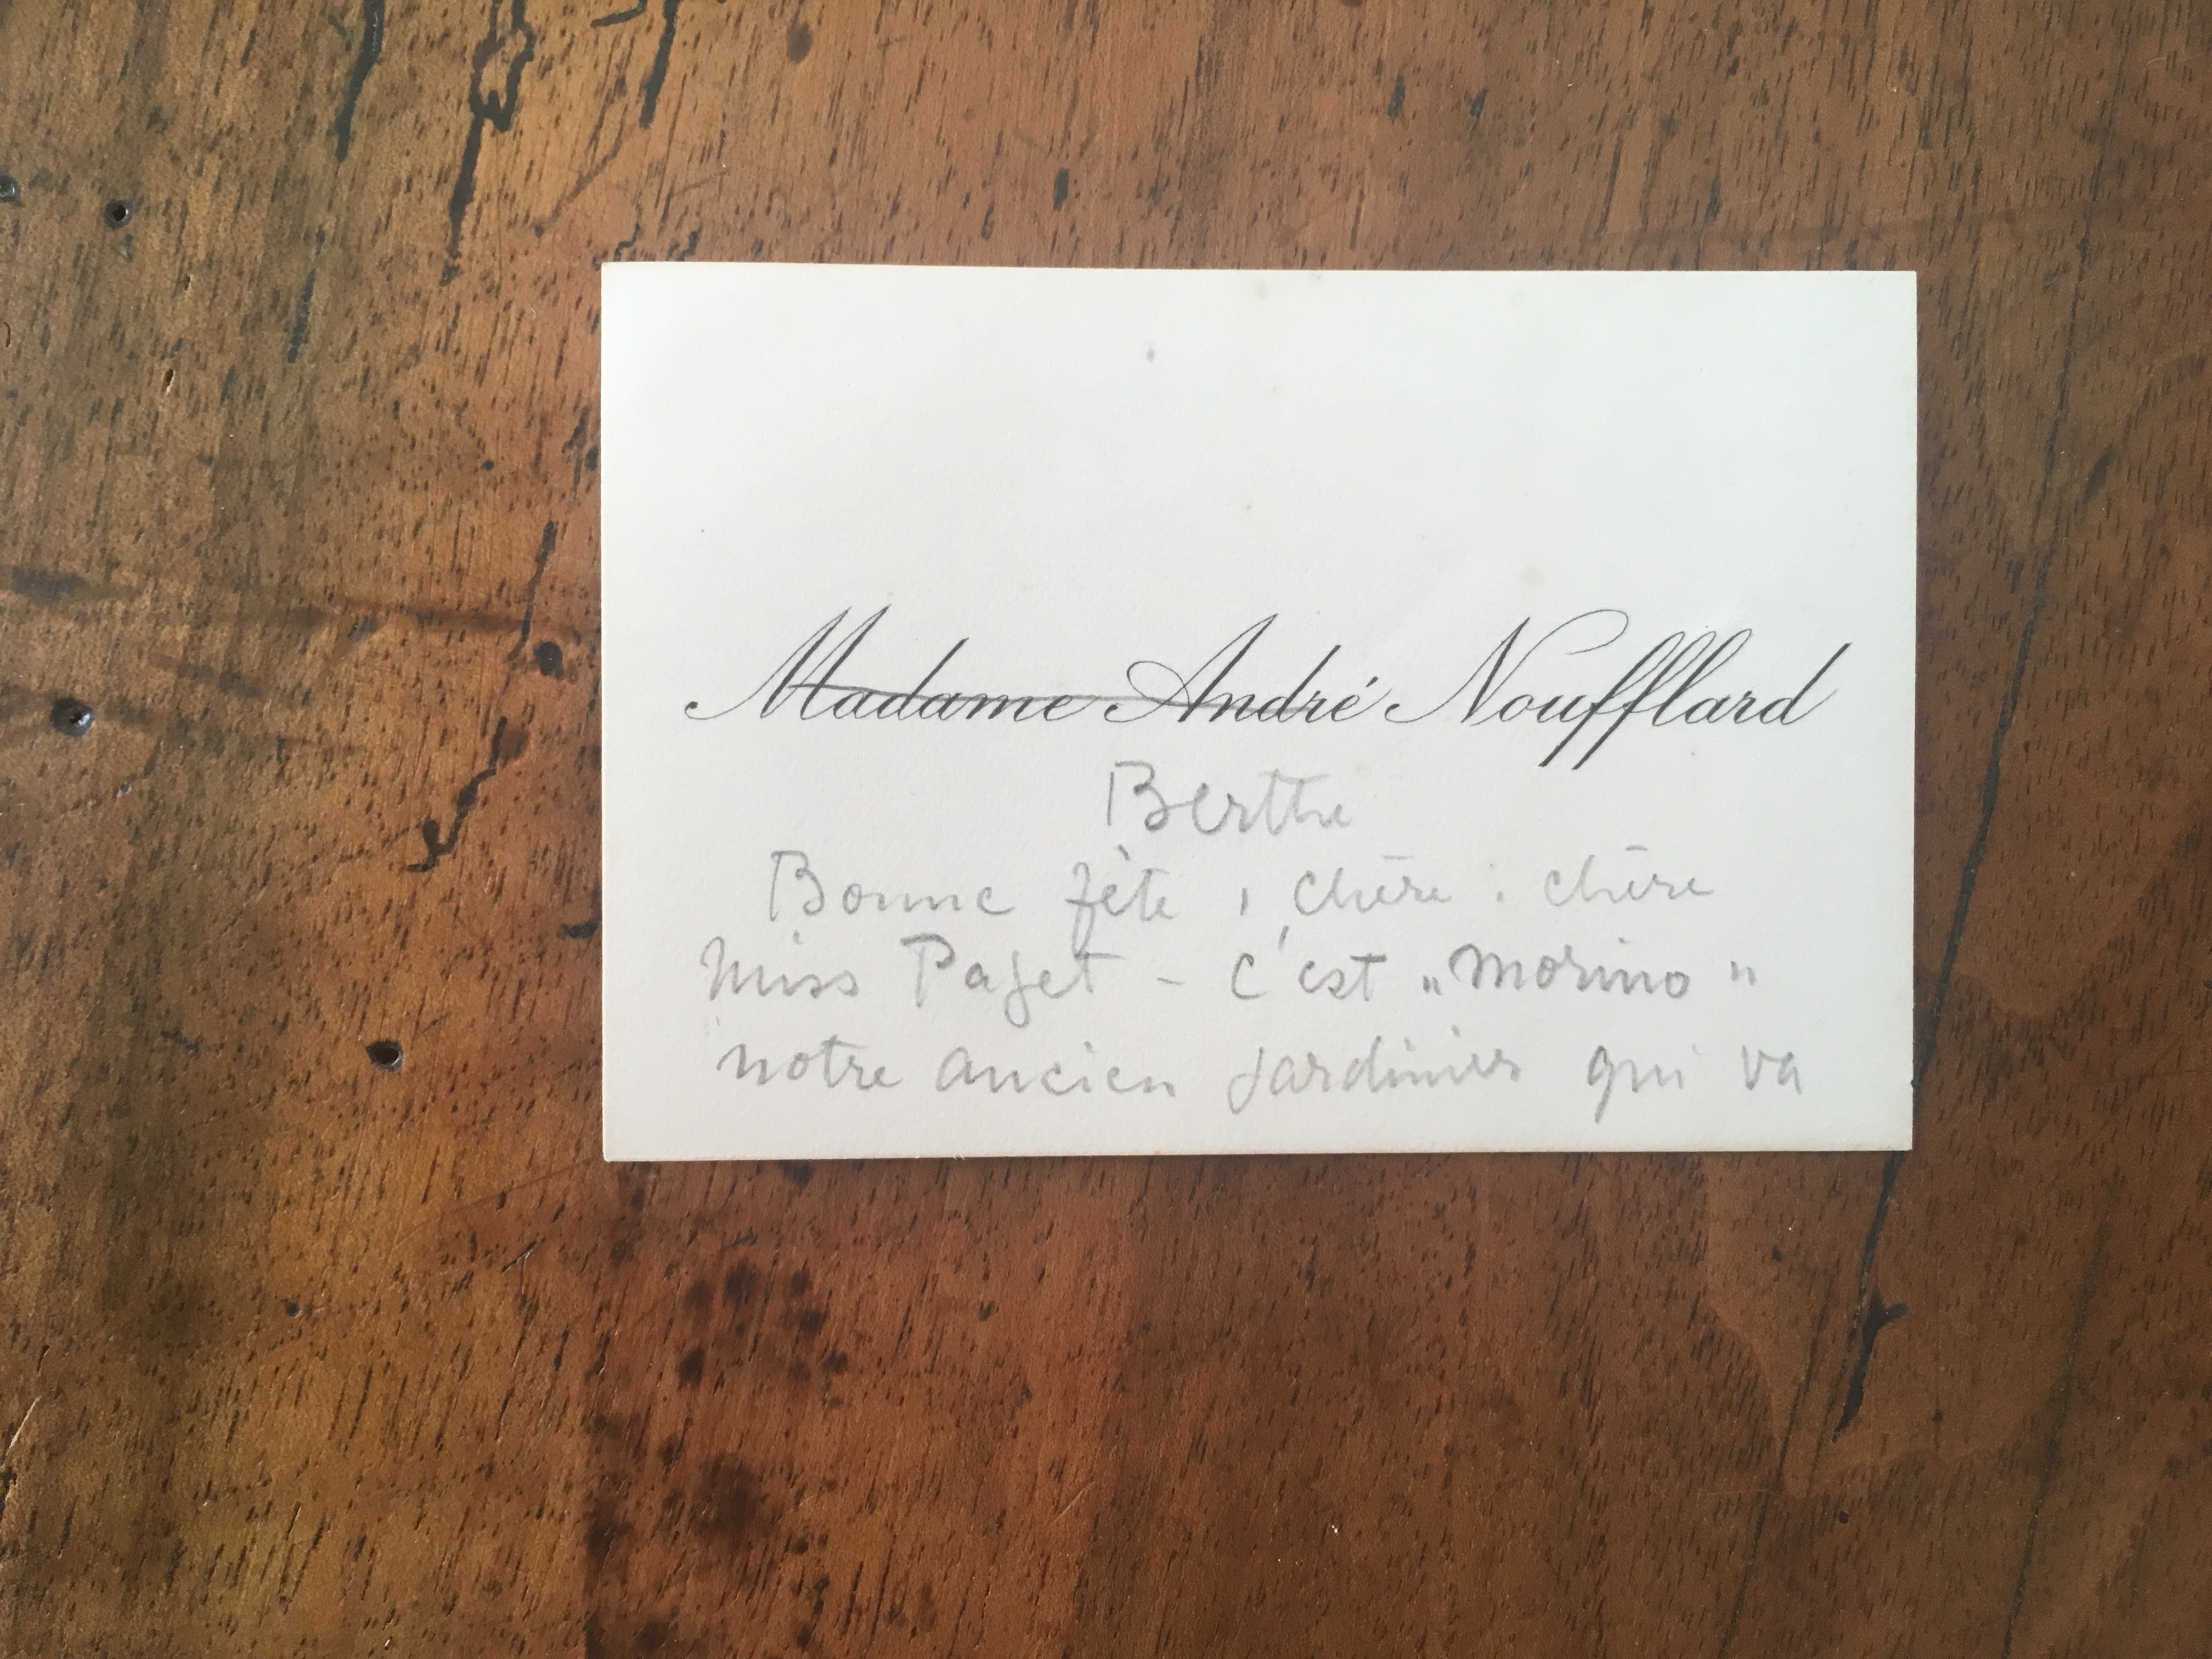 Madame André Noufflard
Berthe
Bonne fête, chère, chère
Miss Paget - c'est "Morino"
notre ancien jardinier qui va